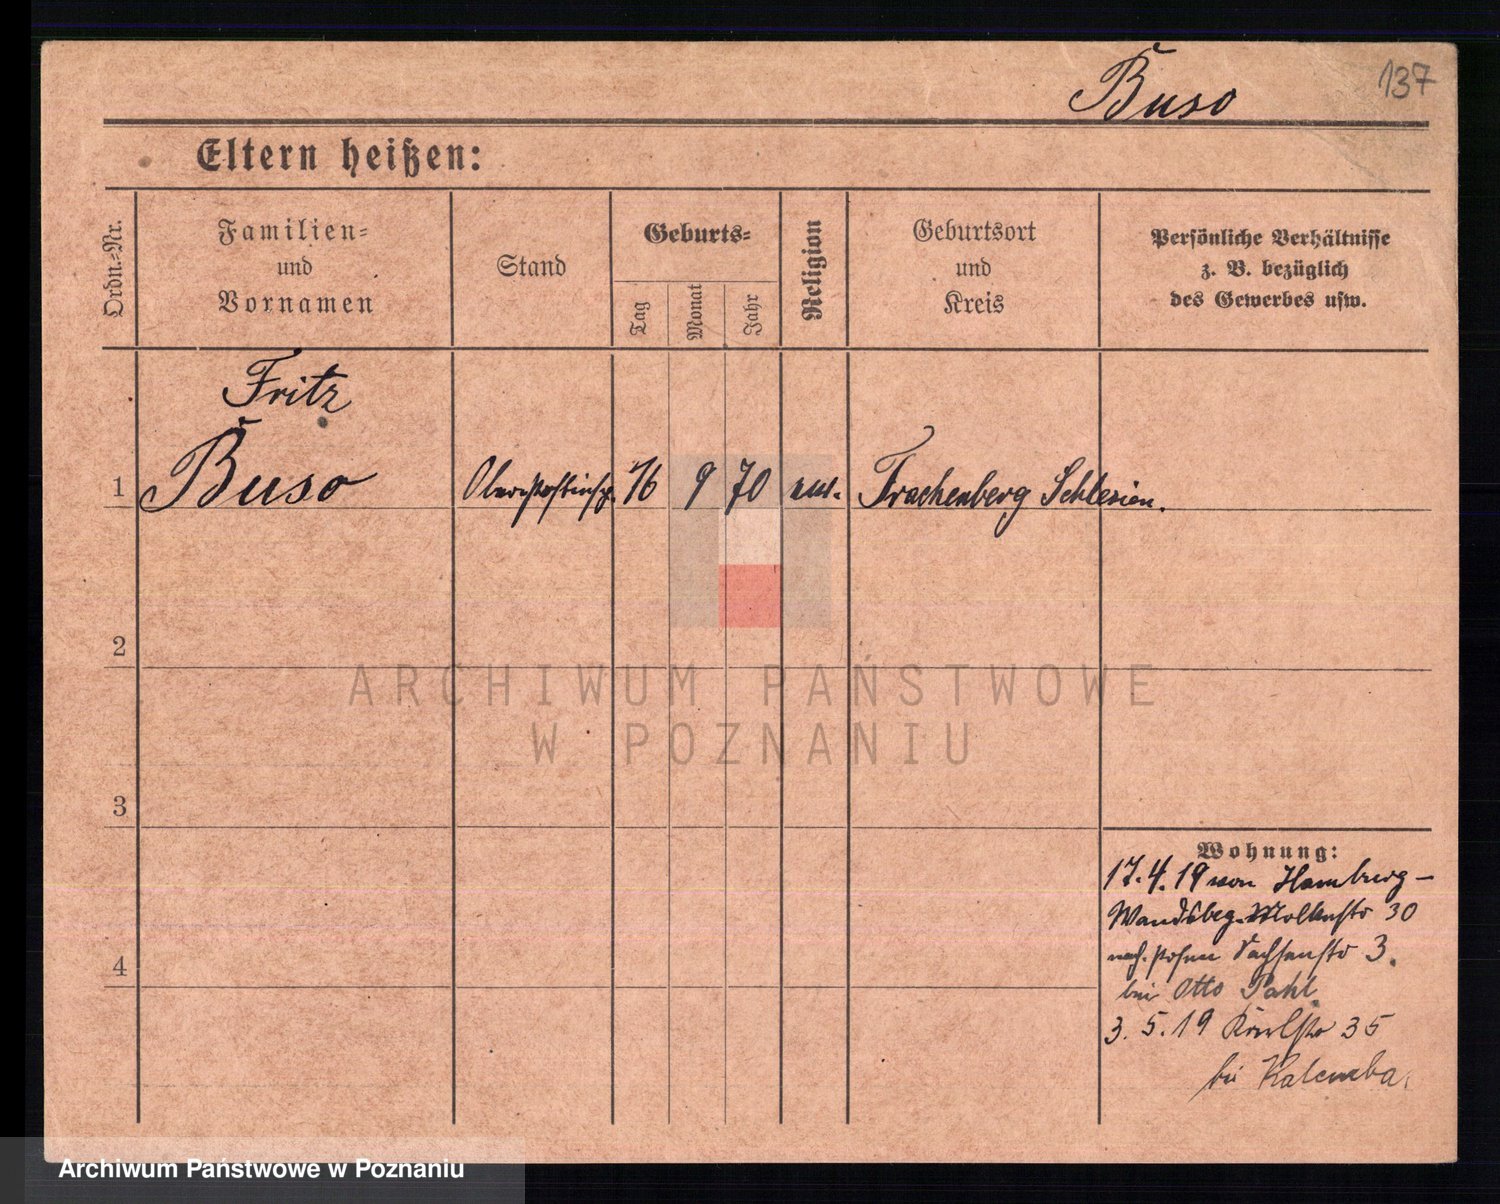 137
Buso
Eltern heißen:
Ordn.-Nr.
Familien-
und
Vornamen
Stand
Geburts-
Tag
Monat
Jahr
Religion
Geburtsort
und
Kreis
Persönliche Verhältnisse
z. B. bezüglich
des Gewerbes usw.
Fritz
1 Buso Oberpostinsp. 16 9 70 Trachenberg Schlesien.
2
3
4
Wohnung:
17.4.19 von Hamburg-
30
nach Posen Sachsenstr 3.
bei Otto Pahl
3.5.19 35
bei Kalemba.
ARCHIWUM PAŃSTWOWE
W POZNANIU
Archiwum Państwowe w Poznaniu